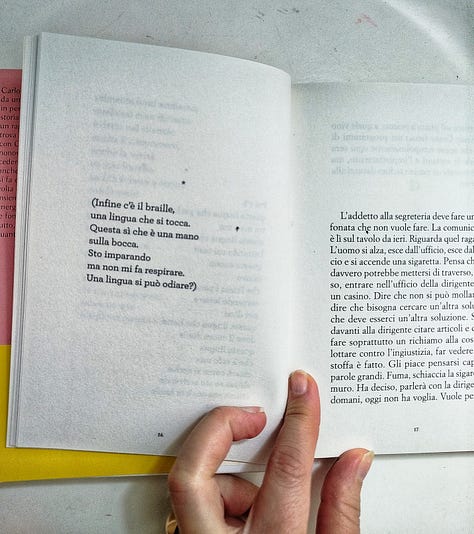 (Infine c'è il braille,
una lingua che si tocca.
Questa sì che è una mano
sulla bocca.
Sto imparando
ma non mi fa respirare.
Una lingua si può odiare?)
16
L'addetto alla segreteria deve fare un
fonata che non vuole fare. La comunic
è lì sul tavolo da ieri. Riguarda quel raga
L'uomo si alza, esce dall'ufficio, esce dal
cio e si accende una sigaretta. Pensa ch
davvero potrebbe mettersi di traverso,
so, entrare nell'ufficio della dirigente
un casino. Dire che non si può mollar
dire che bisogna cercare un'altra solu
che deve esserci un'altra soluzione. S
davanti alla dirigente citare articoli e c
fare soprattutto un richiamo alla cos
lottare contro l'ingiustizia, far vedere
stoffa è fatto. Gli piace pensarsi cap
parole grandi. Fuma, schiaccia la sigar
muro. Ha deciso, parlerà con la dirige
domani, oggi non ha voglia. Vuole pe
17